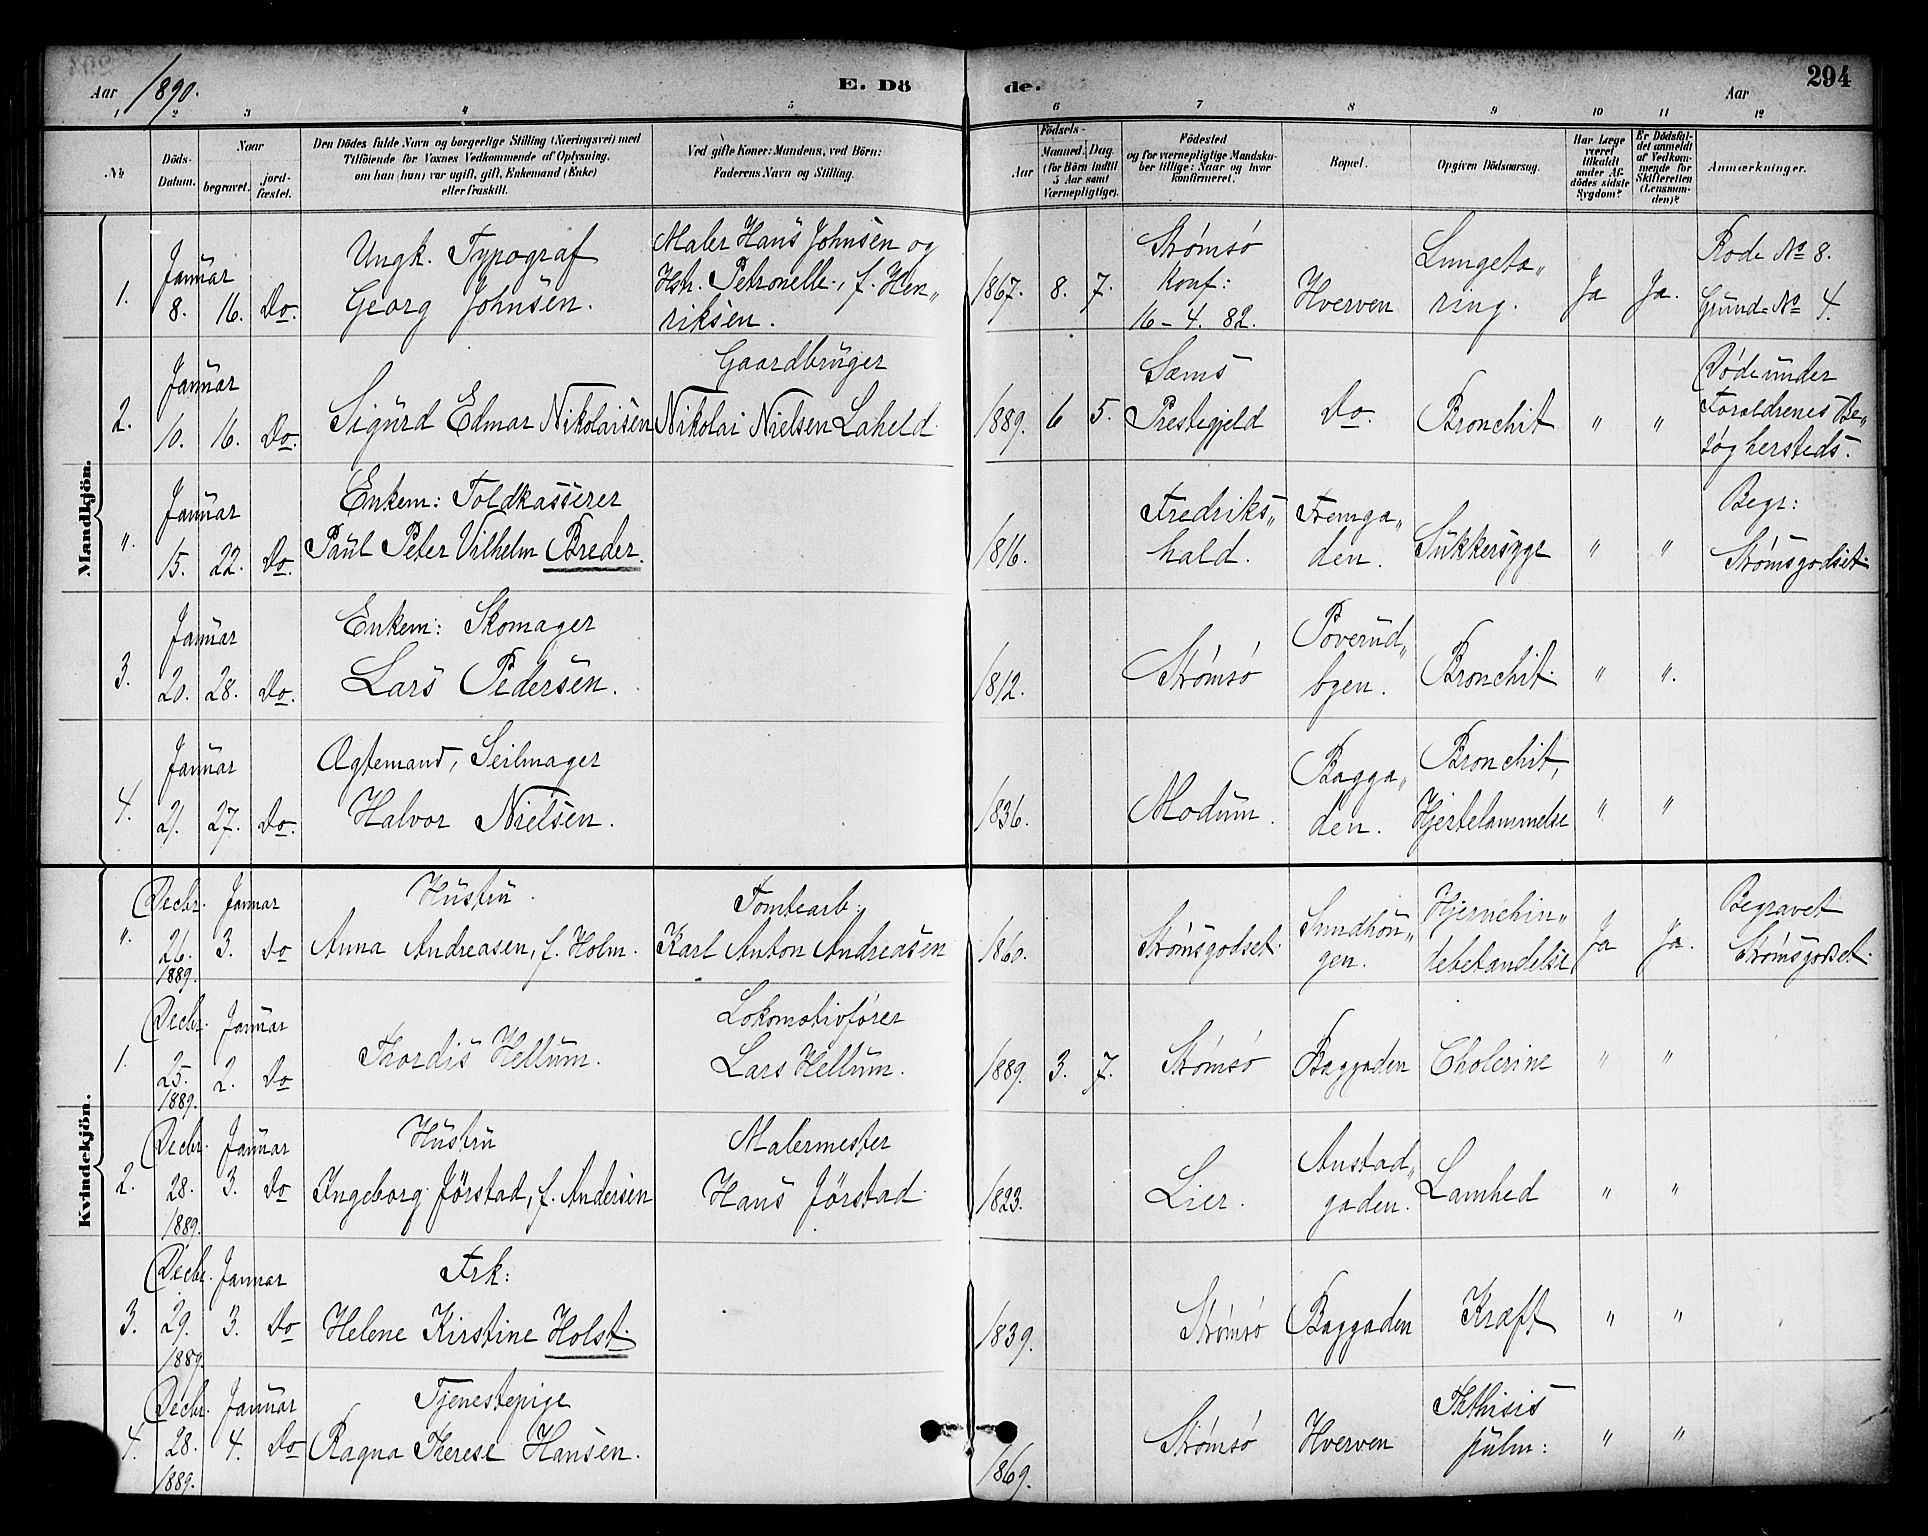 Aar 1890. E. Dö de. Aar 294
1 2 3 4 5 6 7 8 9 10 11 12
No
Döds-Datum.
Naar
begravet. jord-fæstet.
Den Dödes fulde Navn og borgerlige Stilling (Næringsvei) med
Tilföiende for Voxnes Vedkommende af Oplysning,
om han (hun) var ugift, gift, Enkemand (Enke)
eller fraskilt.
Ved gifte Koner: Mandens, ved Börn:
Faderens Navn og Stilling.
Födsels-
Aar Maaned. Dag.
(for Börn indtil
5 Aar samt
Værnepligtige).
Födested
og for værnepligtige Mandska-
ber tillige: Naar og hvor
konfirmeret.
Bopæl.
Opgiven Dödsaarsag.
Har Læge
været
tilkaldt
under Af-
dödes sidste
Sygdom?
Er Dödsfal-
det anmeldt
af Vedkom-
mende for
Skifteretten
(Lensman-
den)?
Anmærkninger.
Mandkjön.
1. Januar 8. 16. Do.
Ungk. Typograf
Georg Johnsen.
Maler Hans Johnsen og
Hstr. Petronelle, f. Hen„
riksen.
1867. 8. 7.
Strømsø
Konf:
16-4. 82.
Hverven
Lungetæ„
ring.
Ja Ja.
Rode No 8.
Grund No 4.
2. Januar 10. 16. Do.
Sigurd Edmar Nikolaisen
Gaardbruger
Nikolai Nielsen Laheld
1889. 6 5.
Sems
Prestegjeld
Do.
Bronchit
" "
Døde under
Forældrenes Be„
søg hersteds.
". Januar 15. 22. Do.
Enkem: Toldkasserer
Paul Peter Vilhelm Breder.
1816.
Fredriks„
hald.
Tremga„
den.
Sukkersyge
" "
Begr:
Strømsgodset.
3. Januar 20. 28. Do.
Enkem: Skomager
Lars Pedersen.
1812.
Strømsø
Poverud„
byen.
Bronchit.
" ".
4. Januar 21. 27. Do.
Ægtemand, Seilmager
Halvor Nielsen.
1836.
Modum.
Bagga„
den.
Bronchit,
Hjertelammelse
" "
Kvindekjön.
". Decbr. 26. 1889. Januar 3. Do
Hustru.
Anna Andreasen, f. Holm.
Tomtearb.
Karl Anton Andreasen
1860.
Strømsgodset.
Sundhou„
gen.
Hjernehin„
debetændelse
Ja Ja.
Begravet
Strømsgodset.
1. Decbr. 25. 1889. Januar 2. Do
Thordis Hellum.
Lokomotivfører
Lars Hellum.
1889. 3. 7.
Strømsø
Baggaden
Cholerine
" "
2. Decbr. 28. 1889. Januar 3. Do
Hustru
Ingeborg Jörstad, f. Andersen
Malermester
Hans Jörstad
1823.
Lier.
Austad„
gaden.
Lamhed
" "
3. Decbr. 29. 1889. Januar 3. Do
Frk:
Helene Kirstine Holst.
1839.
Strømsø
Baggaden
Kræft
" "
4. Decbr. 28. 1889. Januar 4. Do
Tjenestepige
Ragna Therese Hansen.
1869.
Strømsø
Hverven
Phthisis
pulm:
" "